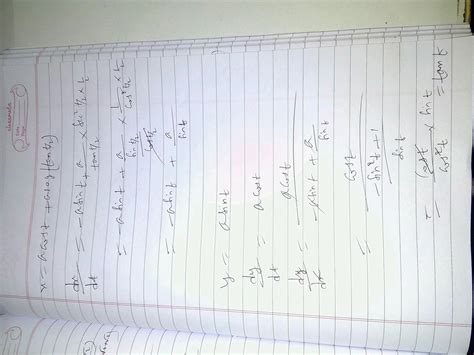 classmate
Date
Page
x = a cos t + a log (tan t/2)
dx/dt = -a sin t + a/(tan t/2) × sec² t/2 × 1/2
= -a sin t + a/(sin t/2 / cos t/2) × 1/(cos² t/2) × 1/2
= -a sin t + a/(sin t)
y = a sin t
dy/dt = a cos t
dy/dx = a cos t/(-a sin t + a/(sin t))
= cos t/((-sin² t + 1)/(sin t))
= cos t/(cos² t) × sin t = tan t